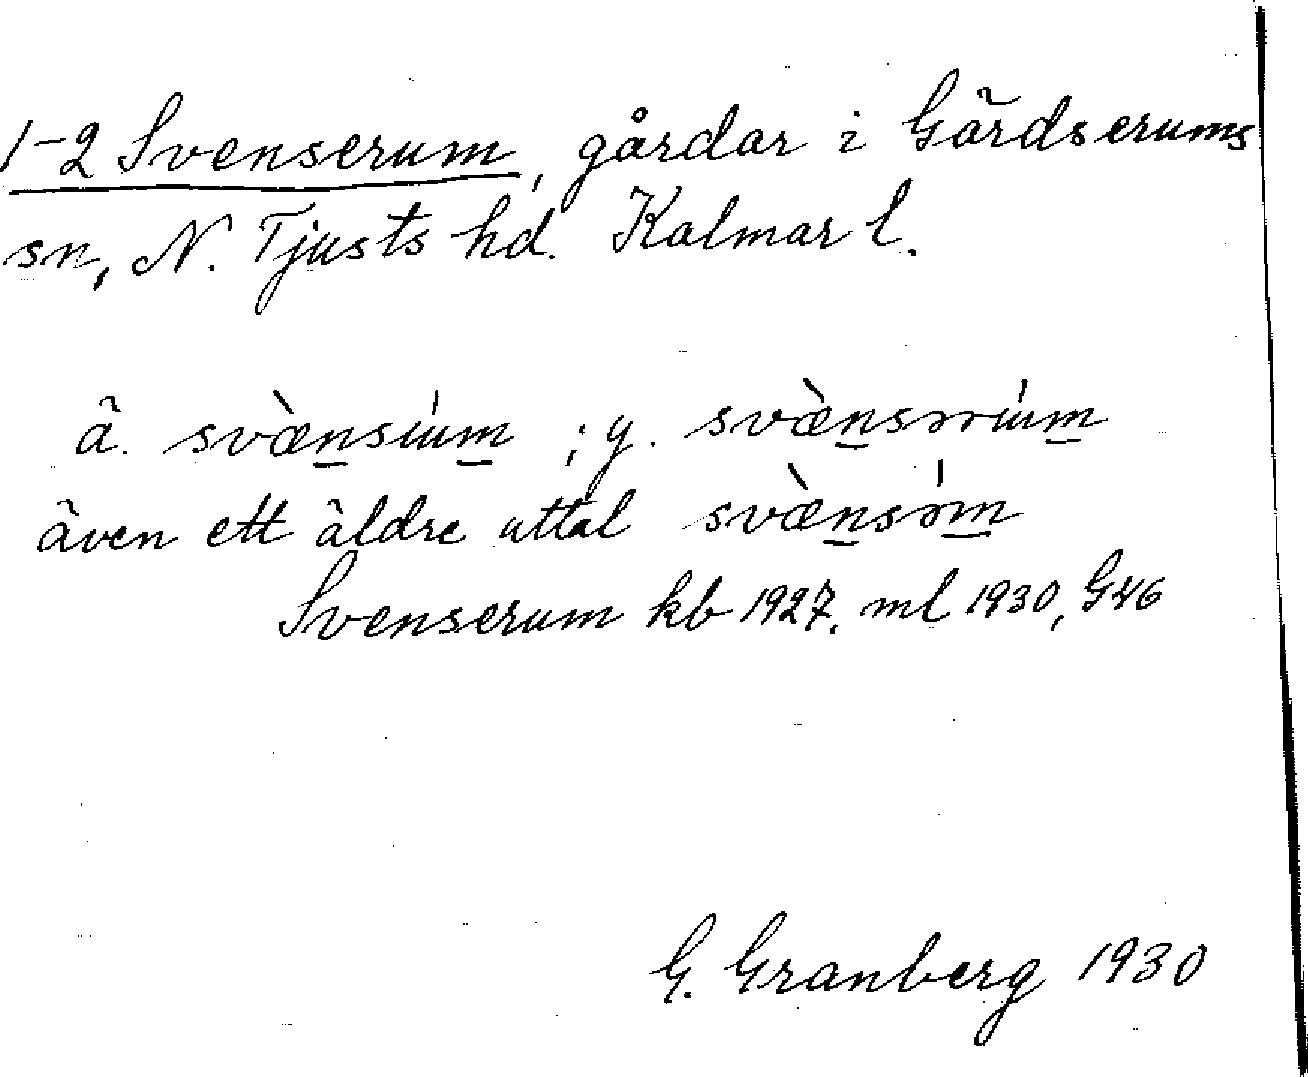 1-2 Svenserum, gårdar i Gärdserums
sn, N. Tjusts hd. Kalmar l.
ä. svæ̀nsúm ; y. svæ̀nsərúm
även ett äldre uttal svæ̀nsə́m
Svenserum kb 1927. ml 1930, G46
G. Granberg 1930